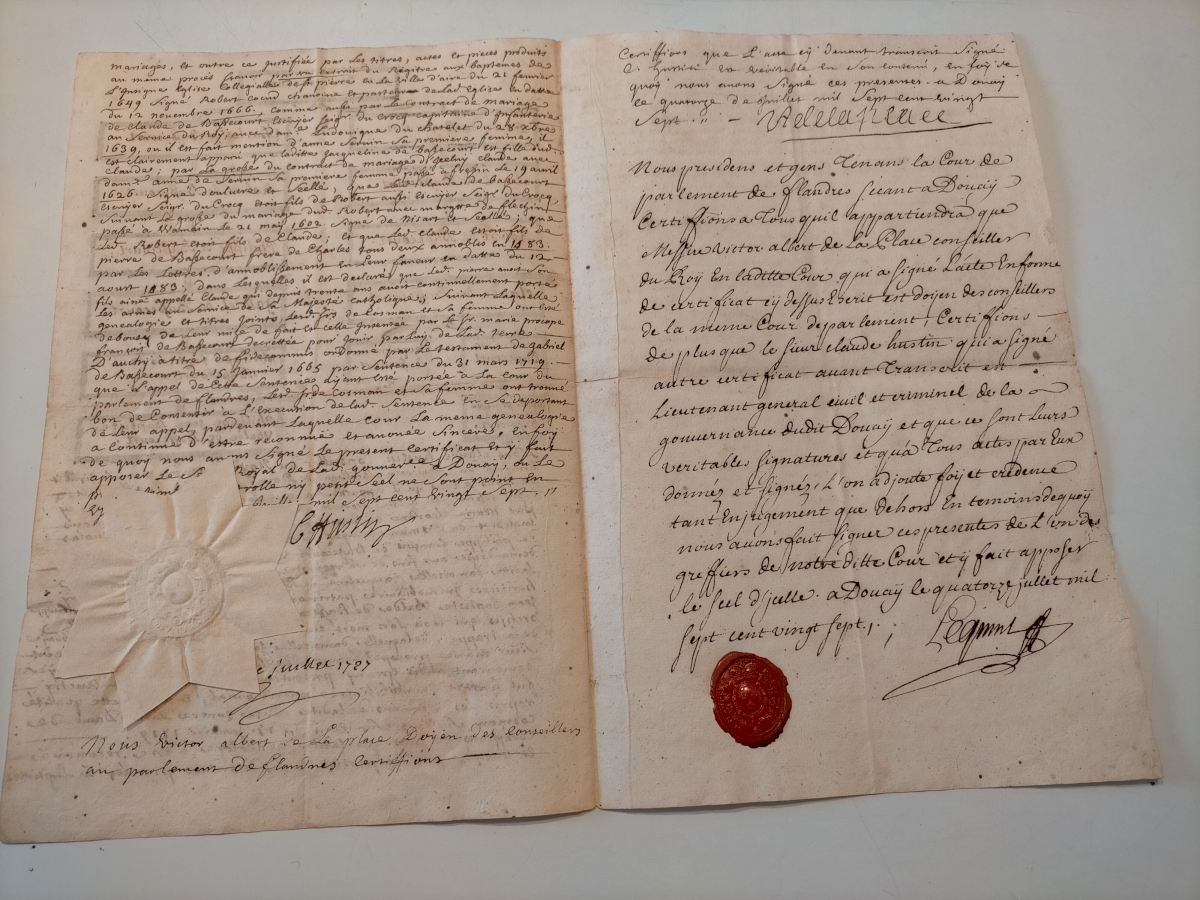 mariages, et outre ce justifiée par les titres, actes et pieces produits
au même procès sçavoir par un extrait du Régitre aux baptêmes de
L'Insigne Eglise Collegialle de St pierre en La Ville d'aire du 21 fevrier
1649 Signé Robert chanoine et de lad. Eglise en datte
du 12 novembre 1666. comme aussi par le contract de mariage
de claude de Bassecourt Escuyer Seigr. du Crocq capitaine d'Infanterie
au Service du Roy, avec dame Ludovique du chatelet du 28 xbre
1639, ou il est fait mention d'anne Sa premiere femme, il
est clairement apparu que laditte Jacqueline de Bassecourt est fille dud.
claude; par La grosse du contract de mariage d'Iceluy claude avec
dame anne de Sa premiere femme passé a le 19 avril
1626. Signé et Seellé, que led. claude de Bassecourt
Escuyer Seigr. du Crocq étoit fils de Robert aussi Escuyer Seigr. du Crocq
Suivant La grosse du mariage dud. Robert avec de flechin
passé a Wamain le 21 may 1602 Signé de et Seellé; que
Led. Robert étoit fils de Claude; et que Led. claude étoit fils de
pierre de Bassecourt frere de Charles tous deux annoblis en 1583.
par Les Lettres d'annoblissement en Leur faveur en datte du 12
aoust 1583. dans Lesquelles il est declaré que Lad. pierre avoit Son
fils ainé appellé Claude qui depuis trente ans avoit continuellement porté
Les armes au Service de Sa Majesté Catholique; Suivant Laquelle
genealogie et titres Joints Led. Sr. de Cosman et Sa femme ont été
de Leur mise de fait en celle Intentée par Le Sr. marie procope
françois de Bassecourt decrettée pour Jouir par Luy de Lad. terre
D'auchy a titre de fideicommis ordonné par Le testament de Gabriel
de Bassecourt du 15 Janvier 1665 par Sentence du 31 mars 1719.
que L'appel de Cette Sentence ayant été portée a La Cour du
parlement de flandres, Led. Sr. de Cosman et Sa femme ont trouvé
bon de Consentir a L'Execution de lad. Sentence en Se deportant
de Leur appel, pardevant Laquelle Cour La meme genealogie
a continué d'estre reconnue et avouée Sincere, En foy
de quoy nous avons Signé Le present certificat Et y fait
apposer Le Royal de Lad. gouvernce a Douay, ou Le
trolle ny petit Seel ne Sont point en
mil Sept cent vingt Sept ,,
CHustin
Juillet 1727
Nous Victor albert de La place Doyen des Conseillers
au parlement de flandres Certiffions
Certiffions que L'acte cÿ devant transcrit Signé
C. hustin Est Veritable en Son Contenu, en foy de
quoy nous avons Signé ces presentes. a Douay
le quatorze de Juillet mil Sept cent vingt
Sept ,, VAdelaplace
Nous presidens et gens Tenans la Cour de
parlement de flandres Séant a Doüay
Certiffions a Tous qu'il appartiendra que
Messire Victor albert de La Place conseiller
du Roÿ En laditte Cour qui a signé L'acte En forme
de certificat cÿ dessus Escrit est doÿen des conseillers
de la meme Cour de parlement, Certifions
de plus que le sieur claude hustin qui a signé
autre certificat avant Transcrit est
Lieutenant general civil et criminel de la
gouvernance dudit Doüay et que ce sont Leurs
veritables signatures et qu'a Tous actes par Eux
donnéz et signéz, L'on adjoute foÿ et credence
tant En jugement que dehors En temoins de quoÿ
nous avons fait signer ces presentes de L'un des
greffiers de notreditte Cour et ÿ fait apposer
le seel d'jcelle. a Doüaÿ le quatorze jullet mil
sept cent vingt sept.